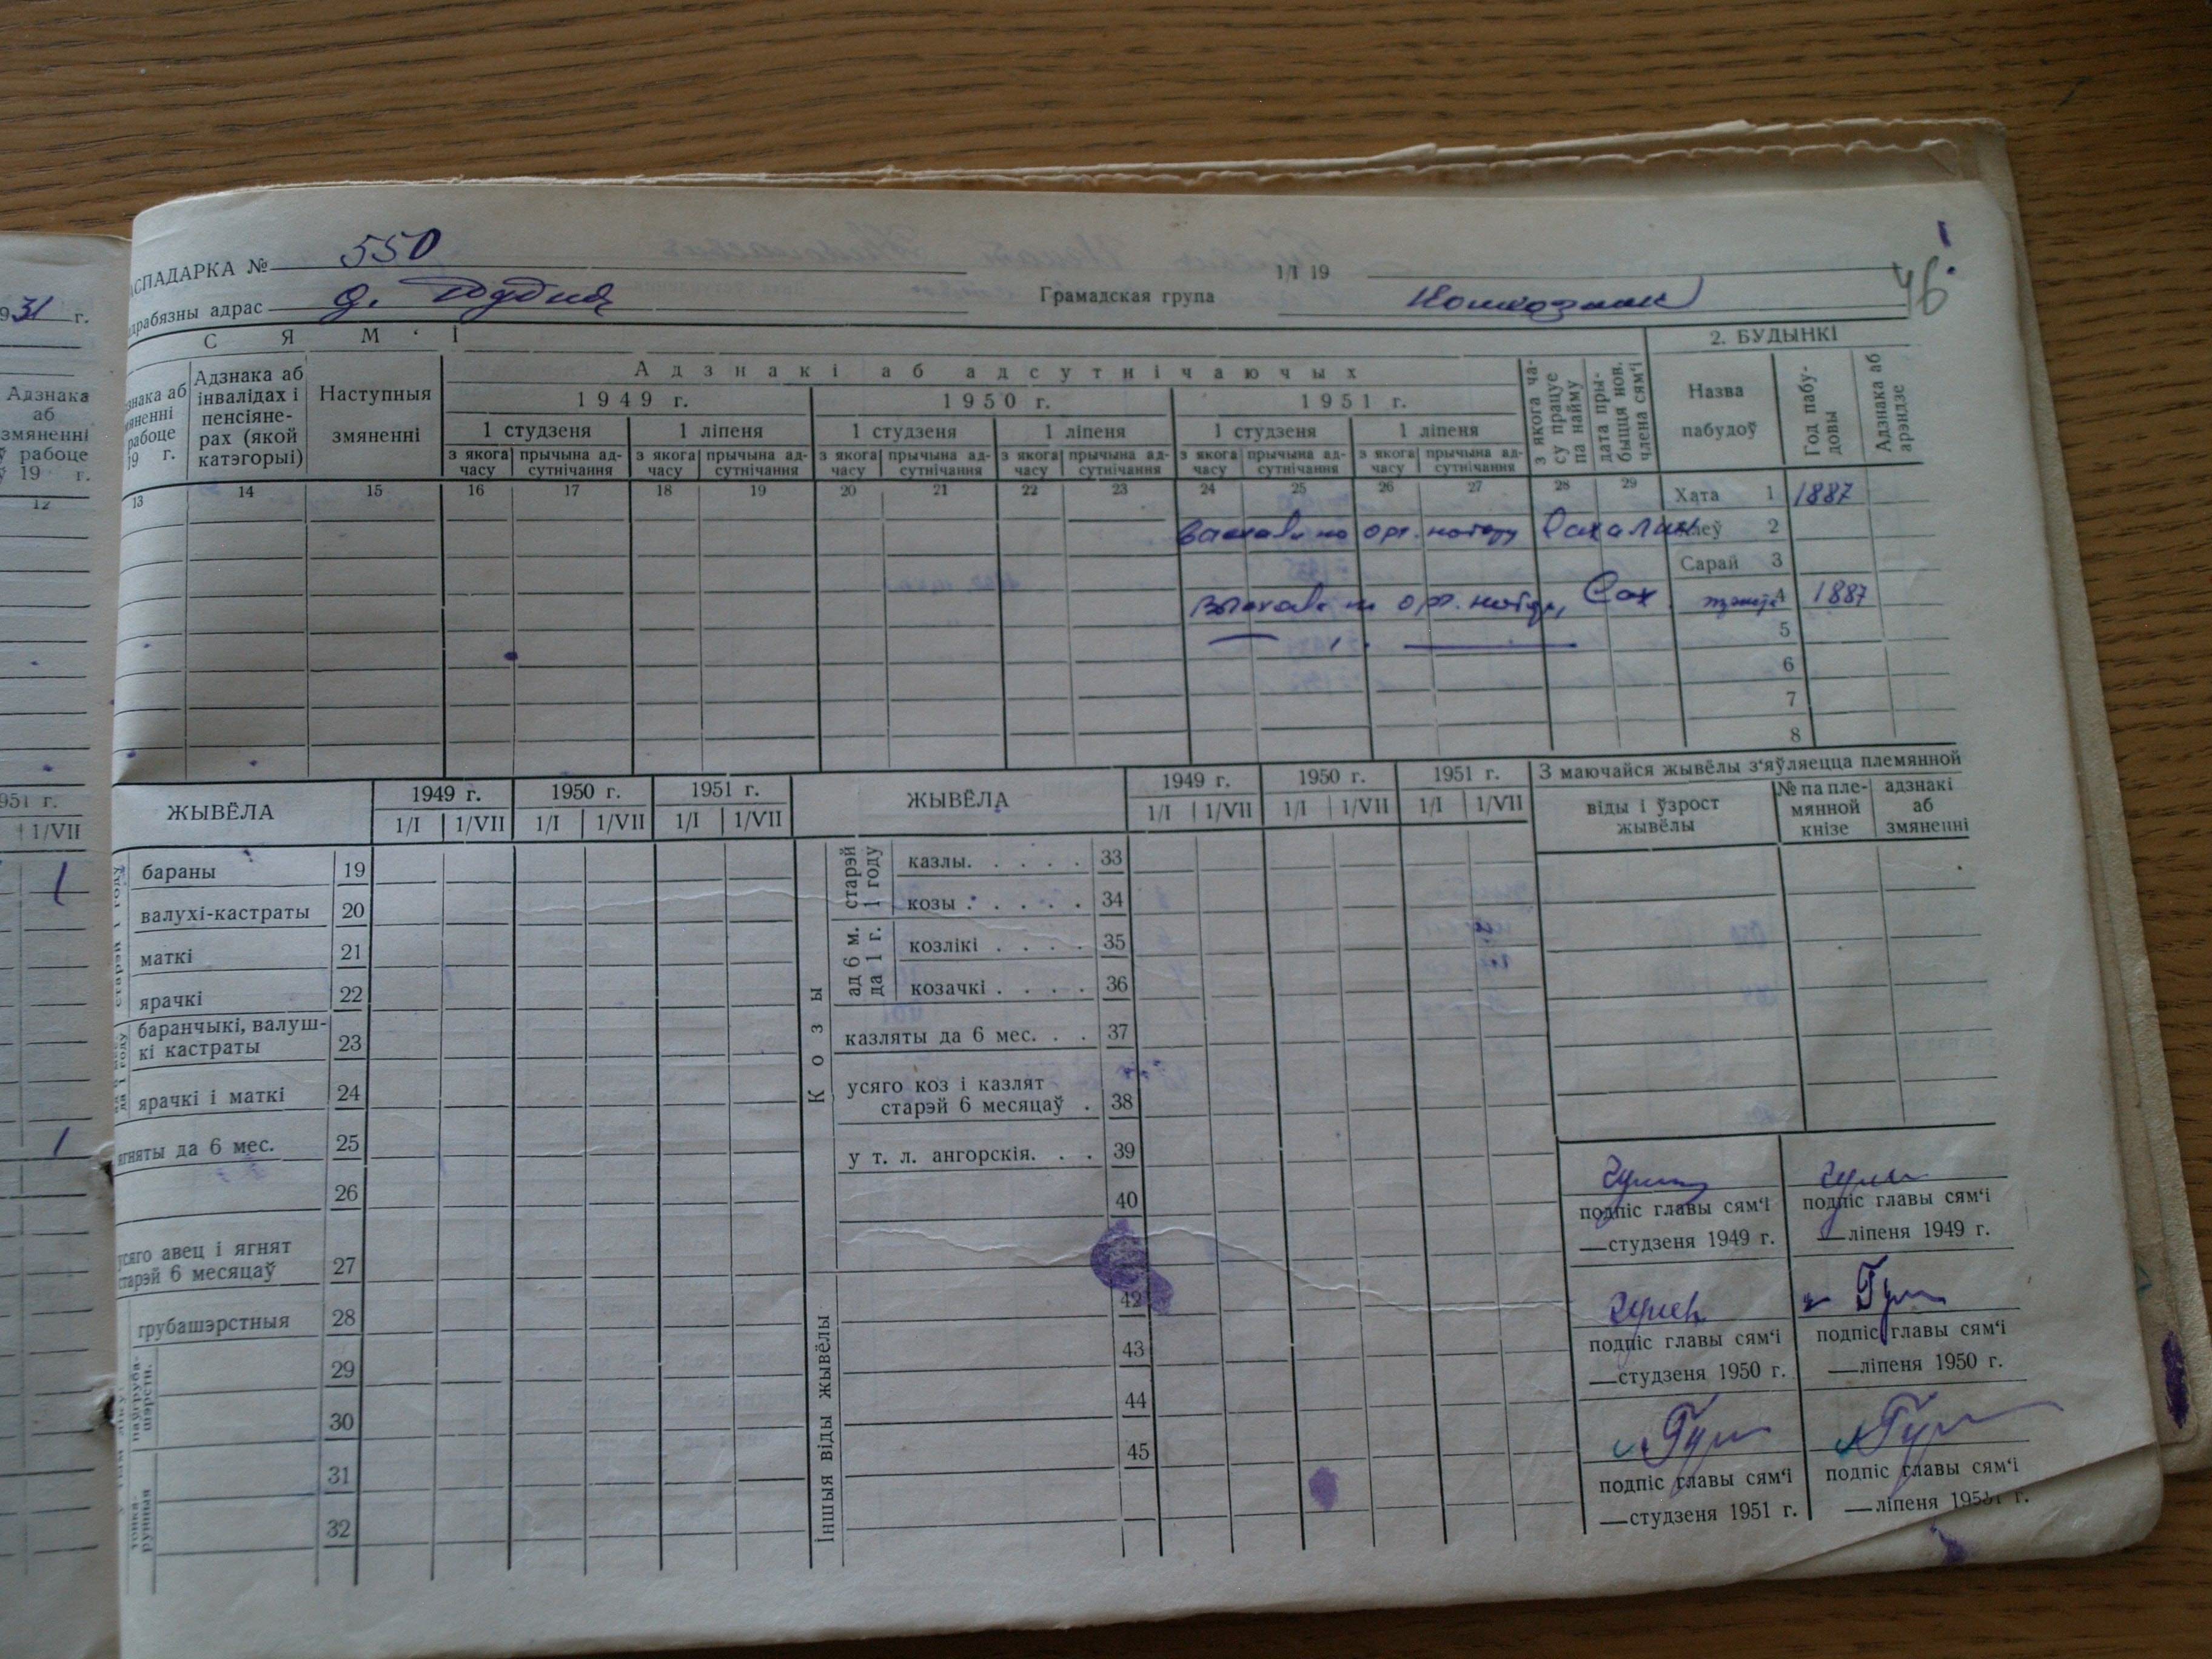 АСПАДАРКА № 550
1/I 19
адрабязны адрас д.
Грамадская група
46
931 г.
С Я М ' І
2. БУДЫНКІ
Адзнака аб змяненні ў рабоце ў 19 г.
12
знака аб мяненні рабоце 19 г.
Адзнака аб інвалідах і пенсіяне-рах (якой катэгорыі)
Наступныя змяненні
Адзнакі аб адсутнічаючых
1949 г.
1950 г.
1951 г.
1 студзеня
1 ліпеня
1 студзеня
1 ліпеня
1 студзеня
1 ліпеня
з якога часу
прычына ад-сутнічання
з якога часу
прычына ад-сутнічання
з якога часу
прычына ад-сутнічання
з якога часу
прычына ад-сутнічання
з якога часу
прычына ад-сутнічання
з якога часу
прычына ад-сутнічання
з якога ча-су працуе па найму
дата пры-быцця нов. члена сям'і
Назва пабудоў
Год пабу-довы
Адзнака аб арэндзе
13 14 15 16 17 18 19 20 21 22 23 24 25 26 27 28 29
Хата 1 1887
по орг. набору Сахалин
2
Сарай 3
по орг. набору Сах
4 1887
5
6
7
8
951 г.
1/VII
ЖЫВЁЛА
1949 г.
1950 г.
1951 г.
1/I 1/VII 1/I 1/VII 1/I 1/VII
ЖЫВЁЛА
1949 г.
1950 г.
1951 г.
1/I 1/VII 1/I 1/VII 1/I 1/VII
З маючайся жывёлы з'яўляецца племянной
віды і ўзрост жывёлы
№ па пле-мянной кнізе
адзнакі аб змяненні
старэй 1 году
бараны 19
валухі-кастраты 20
маткі 21
ярачкі 22
баранчыкі, валуш-кі кастраты 23
ярачкі і маткі 24
ягняты да 6 мес. 25
26
усяго авец і ягнят старэй 6 месяцаў 27
грубашэрстныя 28
29
30
31
32
Козы
старэй 1 году
казлы. . . . . 33
козы . . . . . 34
ад 6 м. да 1 г.
козлікі . . . . 35
козачкі . . . . 36
казляты да 6 мес. . . 37
усяго коз і казлят старэй 6 месяцаў . 38
у т. л. ангорскія. . . 39
40
Іншыя віды жывёлы
42
43
44
45
подпіс главы сям'і
—студзеня 1949 г.
подпіс главы сям'і
—ліпеня 1949 г.
подпіс главы сям'і
—студзеня 1950 г.
подпіс главы сям'і
—ліпеня 1950 г.
подпіс главы сям'і
—студзеня 1951 г.
подпіс главы сям'і
—ліпеня 1951 г.